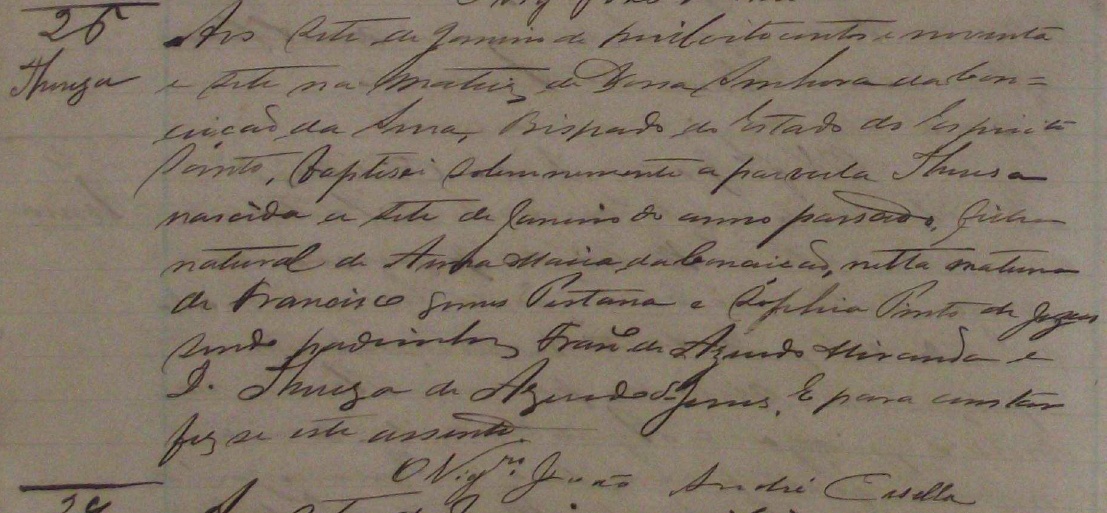 25
Thereza
Aos sete de Janeiro de mil oito centos e noventa
e sete na Matriz de Nossa Senhora da Con=
ceição da Serra, Bispado do Estado do Espirito
Santo, baptisei solemnemente a parvula Theresa
nascida a sete de Janeiro do anno passado, filha
natural de Anna Maria da Conceição, netta materna
de Francisco Gomes Pestana e Sophia Pinto de Jezus
sendo padrinhos Franco de Azeredo Miranda e
D. Thereza de Azeredo de Jesus. E para constar
fez se este assento.
O Vigro João André Casella